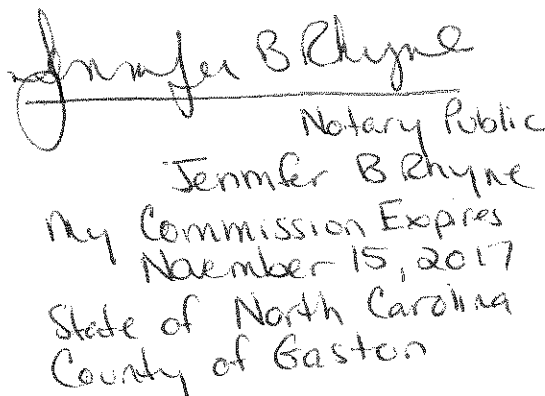 Jennifer B Rhyne
Notary Public
Jennifer B Rhyne
My Commission Expires
November 15, 2017
State of North Carolina
County of Gaston